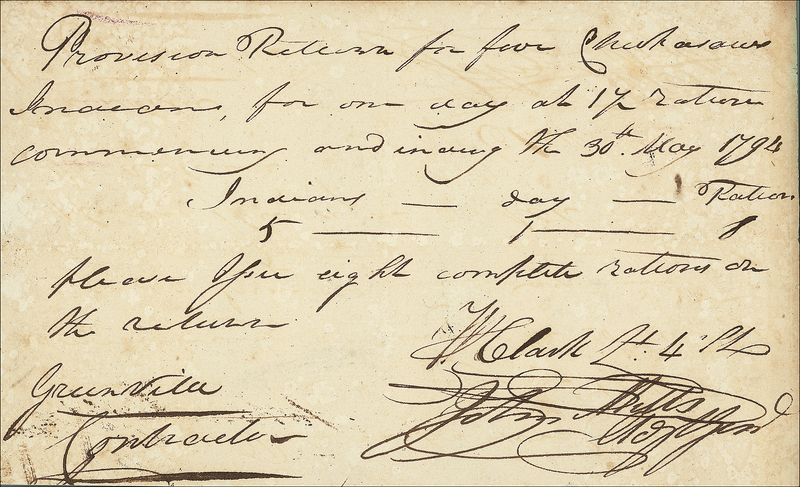 Provision Return for five Chickasaws
Indians, for one day at 1½ ration
commencing and ending the 30th May 1794
Indians — day — Ration
5 — 1 — 8
please Issue eight complete rations on
the return
W Clark Lt. 4th SL
Greenville
John Mills
Contractor